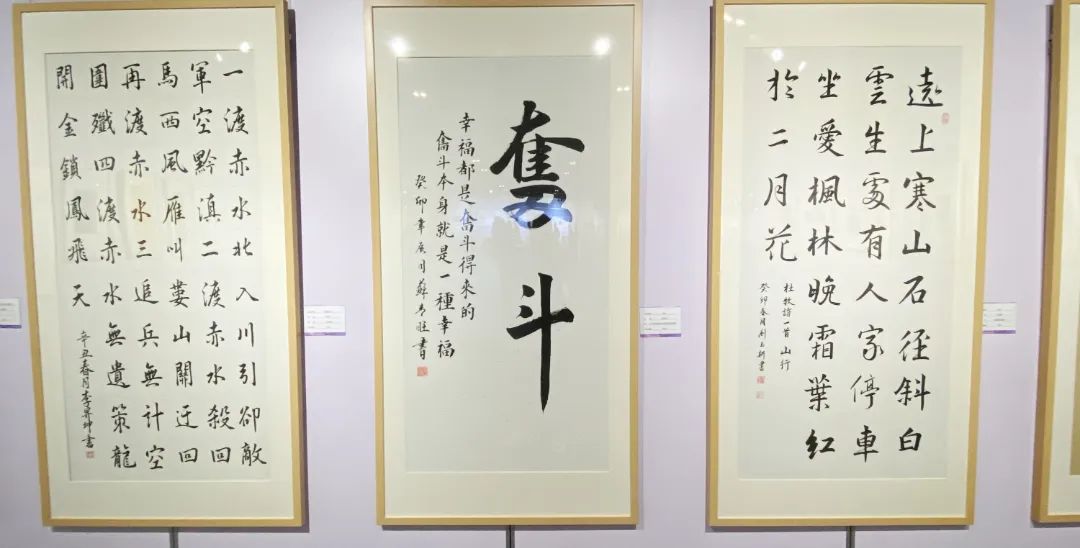 一渡赤水北入川引卻敵
軍空黔滇二渡赤水殺回
馬西風雁叫婁山關迂回
再渡赤水三追兵無計空
圍殲四渡赤水無遺策龍
開金鎖鳳飛天
辛丑春月李昇坤書
奮斗
幸福都是奮斗得來的
奮斗本身就是一種幸福
癸卯年 月蘇 旺書
遠上寒山石径斜白
雲生處有人家停車
坐愛楓林晚霜葉紅
於二月花
杜牧詩一首 山行
癸卯春月 書